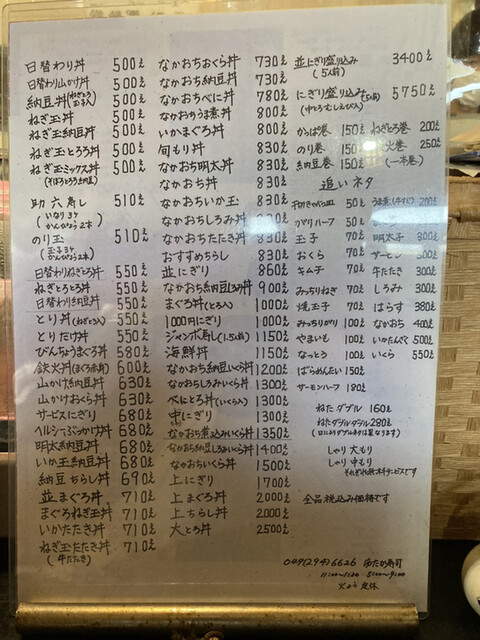 日替わり丼 500え
日替わり山かけ丼 500え
納豆丼(ねぎとろ玉入) 500え
ねぎ玉丼 500え
ねぎ玉納豆丼 500え
ねぎ玉とろろ丼 500え
ねぎ玉ミックス丼 500え
(そぼろとろろ納豆)
助六寿し 510え
(いなり3ヶ
かんぴょう2本)
のり玉 510え
(玉子3ヶ
かんぴょう2本)
日替わりねぎとろ丼 550え
ねぎとろ丼 550え
日替わり納豆丼 550え
とり丼(ねぎ入) 550え
とりたけ丼 550え
びんちょうまぐろ丼 580え
鉄火丼(まぐろ赤身) 600え
山かけ納豆丼 630え
山かけおくら丼 630え
サービスにぎり 680え
ヘルシーぶっかけ丼 680え
明太納豆丼 680え
いか玉納豆丼 680え
納豆ちらし丼 690え
並まぐろ丼 710え
まぐろねぎ玉丼 710え
いかたたき丼 710え
ねぎ玉たたき丼 710え
(牛たたき)
なかおちおくら丼 730え
なかおち納豆丼 730え
なかおちべに丼 780え
なかおちうま煮丼 800え
いかまぐろ丼 800え
旬もり丼 830え
なかおち明太丼 830え
なかおち丼 830え
なかおちいか玉 830え
なかおちしろみ丼 830え
なかおちたたき丼 830え
おすすめちらし 830え
並にぎり 860え
なかおち納豆しろみ丼 900え
まぐろ丼(とろ入) 1000え
1000円にぎり 1000え
ジャンボ寿し(1.5人前) 1150え
海鮮丼 1150え
なかおち納豆いくら丼 1200え
なかおちしろみいくら丼 1300え
べにとろ丼(いくら入) 1300え
中にぎり 1300え
なかおち煮込みいくら丼 1350え
なかおち納豆しろみいくら丼 1400え
なかおちいくら丼 1500え
上にぎり 1700え
上まぐろ丼 2000え
上ちらし丼 2000え
大とろ丼 2500え
並にぎり盛り込み 3400え
(5人前)
にぎり盛り込み(5人前) 5750え
かっぱ巻 150え ねぎとろ巻 200え
のり巻 150え 鉄火巻 250え
納豆巻 150え (一本巻)
追いネタ
50え うま煮(牛すじ) 200え
ガリハーフ 50え 200え
玉子 70え 明太子 300え
おくら 70え サーモン 300え
キムチ 70え 牛たたき 300え
みっちりねぎ 70え しろみ 300え
焼玉子 70え はらす 380え
みっちりがり 100え なかおち 400え
やまいも 100え いかたんざく 500え
なっとう 100え いくら 550え
ばらめんたい 150え
サーモンハーフ 180え
ねたダブル 160え
ねたダブルダブル 280え
(日によりダブルネタは異なります)
しゃり大もり
しゃり中もり
全品税込み価格です
049(294)6626
11:00〜 5:00〜9:00
火よう定休